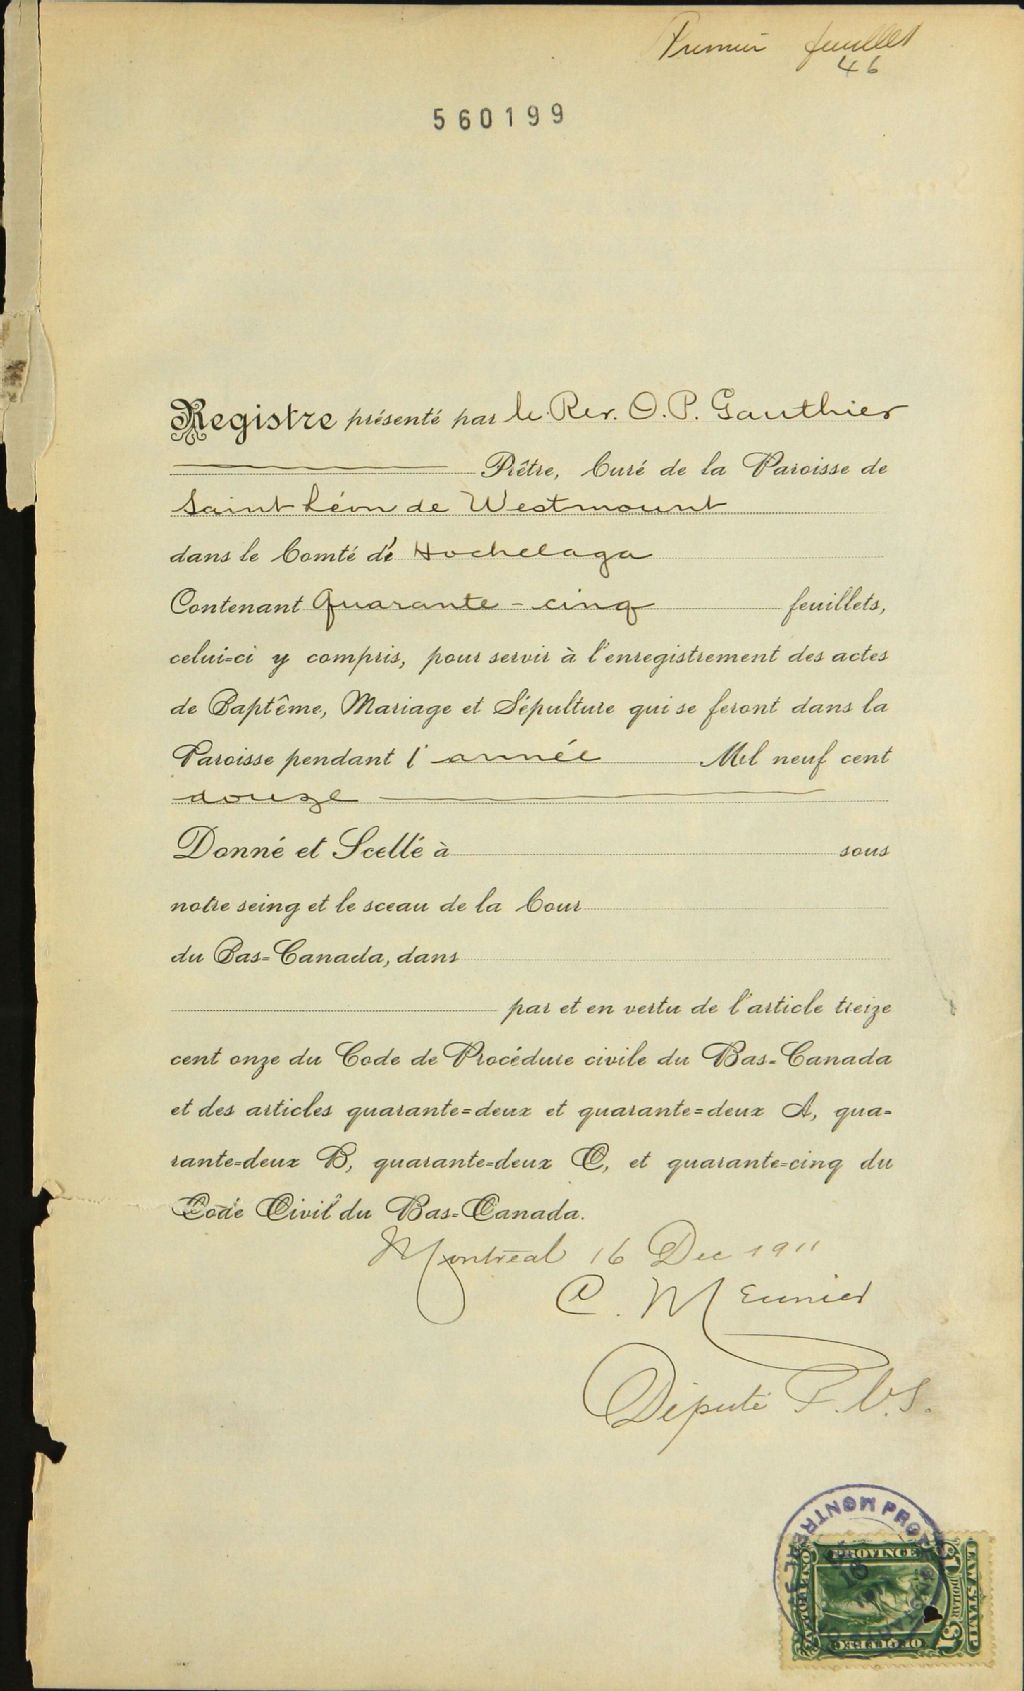 Premier feuillet
46
560199
Registre présenté par le Rev. O. P. Gauthier
Prêtre, Curé de la Paroisse de
Saint Léon de Westmount
dans le Comté d' Hochelaga
Contenant Quarante-cinq feuillets,
celui=ci y compris, pour servir à l'enregistrement des actes
de Baptême, Mariage et Sépulture qui se feront dans la
Paroisse pendant l'année Mil neuf cent
douze
Donné et Scellé à sous
notre seing et le sceau de la Cour
du Bas=Canada, dans
par et en vertu de l'article treize
cent onze du Code de Procédure civile du Bas=Canada
et des articles quarante=deux et quarante=deux A, qua=
rante=deux B, quarante=deux C, et quarante=cinq du
Code Civil du Bas=Canada.
Montréal 16 Dec 1911
C. Meunier
Député P.C.S.
MONTREAL
PROVINCE
LAW STAMP
OF QUEBEC
ONE DOLLAR
$1
DOLLAR
$1